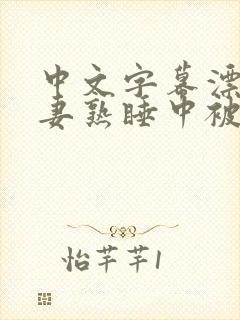 中文字幕漂
妻熟睡中被
怡芊芊1